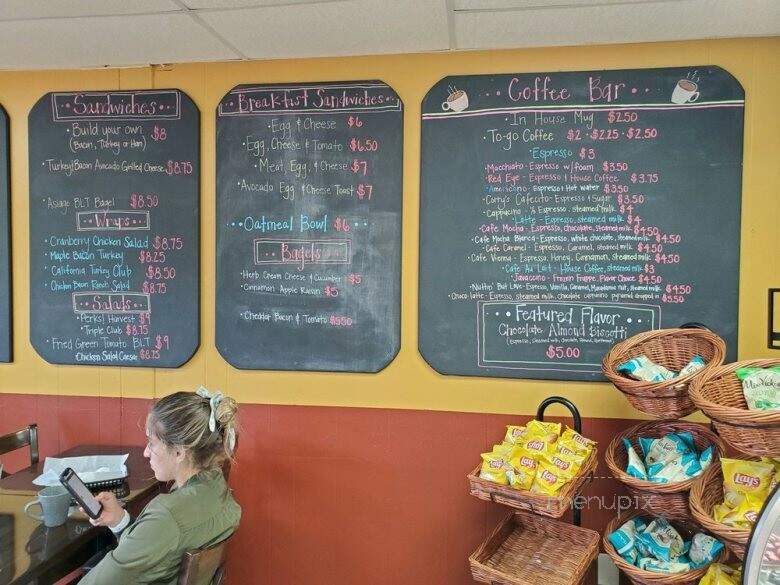 Sandwiches
Build your own $8
(Bacon, Turkey or Ham)
Turkey/Bacon Avocado Grilled Cheese $8.75
Asiago BLT Bagel $8.50
Wraps
Cranberry Chicken Salad $8.75
Maple Bacon Turkey $8.25
California Turkey Club $8.50
Chicken Bacon Ranch Salad $8.75
Salads
Perks! Harvest $9
Triple Club $8.75
Fried Green Tomato BLT $9
Chicken Salad Caesar $8.75
Breakfast Sandwiches
Egg & Cheese $6
Egg, Cheese & Tomato $6.50
Meat, Egg, & Cheese $7
Avocado Egg & Cheese Toast $7
Oatmeal Bowl $6
Bagels
Herb Cream Cheese & Cucumber $5
Cinnamon Apple Raisin $5
Cheddar Bacon & Tomato $5.50
Coffee Bar
In House Mug $2.50
To-go Coffee $2 • $2.25 • $2.50
Espresso $3
Macchiato - Espresso w/foam $3.50
Red Eye - Espresso & House Coffee $3.75
Americano - Espresso & Hot water $3.50
Corry's Cafecito - Espresso & Sugar $3.50
Cappucino - ⅓ Espresso, steamed milk $4
Latte - Espresso, steamed milk $4
Cafe Mocha - Espresso, chocolate, steamed milk $4.50
Cafe Mocha Blanca - Espresso, white chocolate, steamed milk $4.50
Cafe Caramel - Espresso, Caramel, steamed milk $4.50
Cafe Vienna - Espresso, Honey, Cinnamon, steamed milk $4.50
Cafe Au Lait - House Coffee, steamed milk $3
Javaccino - Frozen Frappe, Flavor Choice $4.50
Nuttin' But Love - Espresso, Vanilla, Caramel, Macadamia nut, steamed milk $4.50
Choco-latte - Espresso, steamed milk, chocolate pyramid dropped in $5.50
Featured Flavor
Chocolate Almond Biscotti
$5.00
Lay's
Lay's
Lay's
Lay's
Lay's
Miss Vickie's
menupix